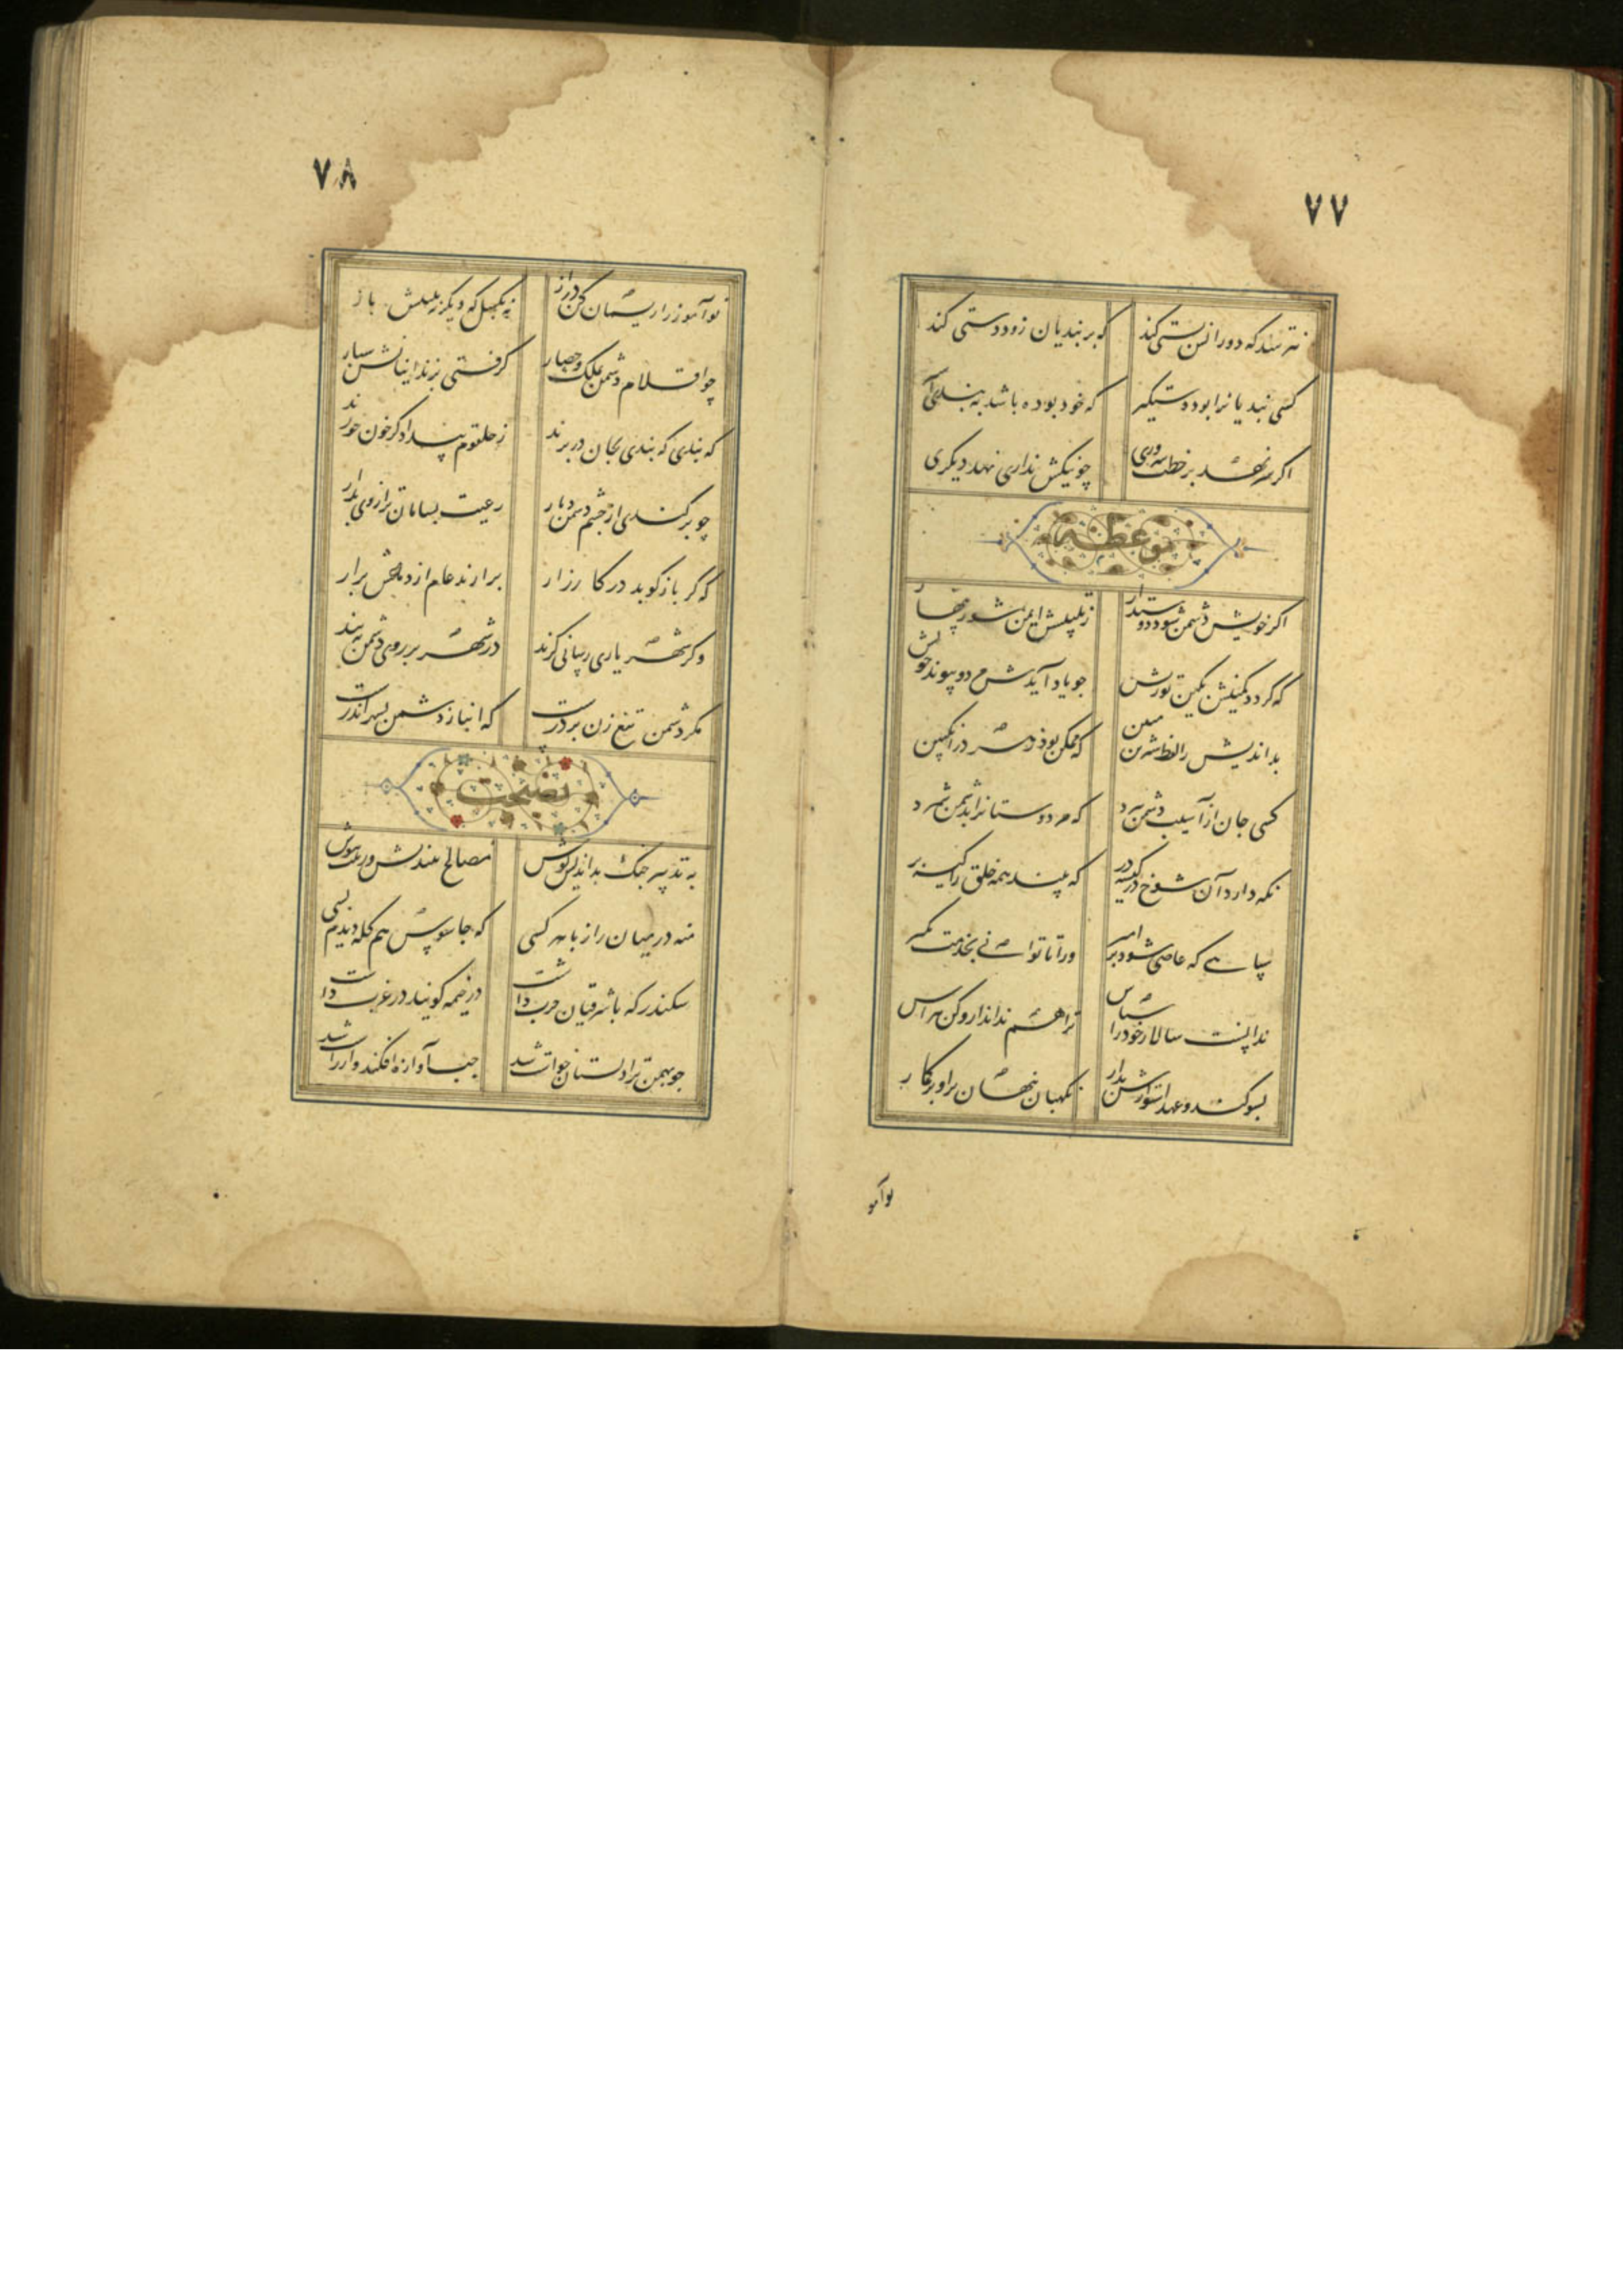 ۷۷
نترسد که دورانش بستی کند که بر بندیان زود دستی کند
کسی بندیانرا بود دستگیر که خود بوده باشد به بندی
اکر سر نهد بر خطت سروری چو نیکش نداری نهد دیکری
موعظه
اکر خویش دشمن شود دوستدار ز تلبیسش ایمن مشو زینهار
که کردد درونش بکین تو ریش چو یاد آیدش مهر و پیوند خویش
بد اندیش را لفظ شیرین مبین که ممکن بود زهر در انکبین
کسی جان از آسیب دشمن ببرد که مر دوستانرا بدشمن شمرد
نکه دارد آن شوخ در کیسه در که بیند همه خلق را کیسه بر
سپاهی که عاصی شود بر امیر ورا تا توانی بخدمت مکیر
ندانست سالار خود را سپاس ترا هم نداند ازو کن هراس
بسوکند و عهد استوارش مدار نکهبان نهان بر او بر کار
نوآمو
۷۸
نوآموز را ریسمان کن دراز نه بکسل که دیکر نبینیش باز
چو اقلام دشمن بملک و حصار کرفتی بزندانیانش سپار
که بندی که بندی بجان در برند ز حلقوم بیدادکر خون خورند
چو برکندی از چشم دشمن دیار رعیت بسامان تر از وی بدار
که کر باز کوبد در کارزار برارند عام از دماغش برار
وکر شهریاری رسانی کزند در شهر بر روی دشمن مبند
مکو دشمن تیغ زن بر درست که انباز دشمن بشهر اندرست
نصیحت
به تدبیر جنک بد اندیش کوش مصالح بیندیش و نیت بپوش
منه در میان راز با هر کسی که جاسوس هم کاسه دیدم بسی
سکندر که با شرقیان حرب داشت در خیمه کویند در غرب داشت
چو بهمن بزاولستان خواست شد چپ آوازه افکند و از راست شد